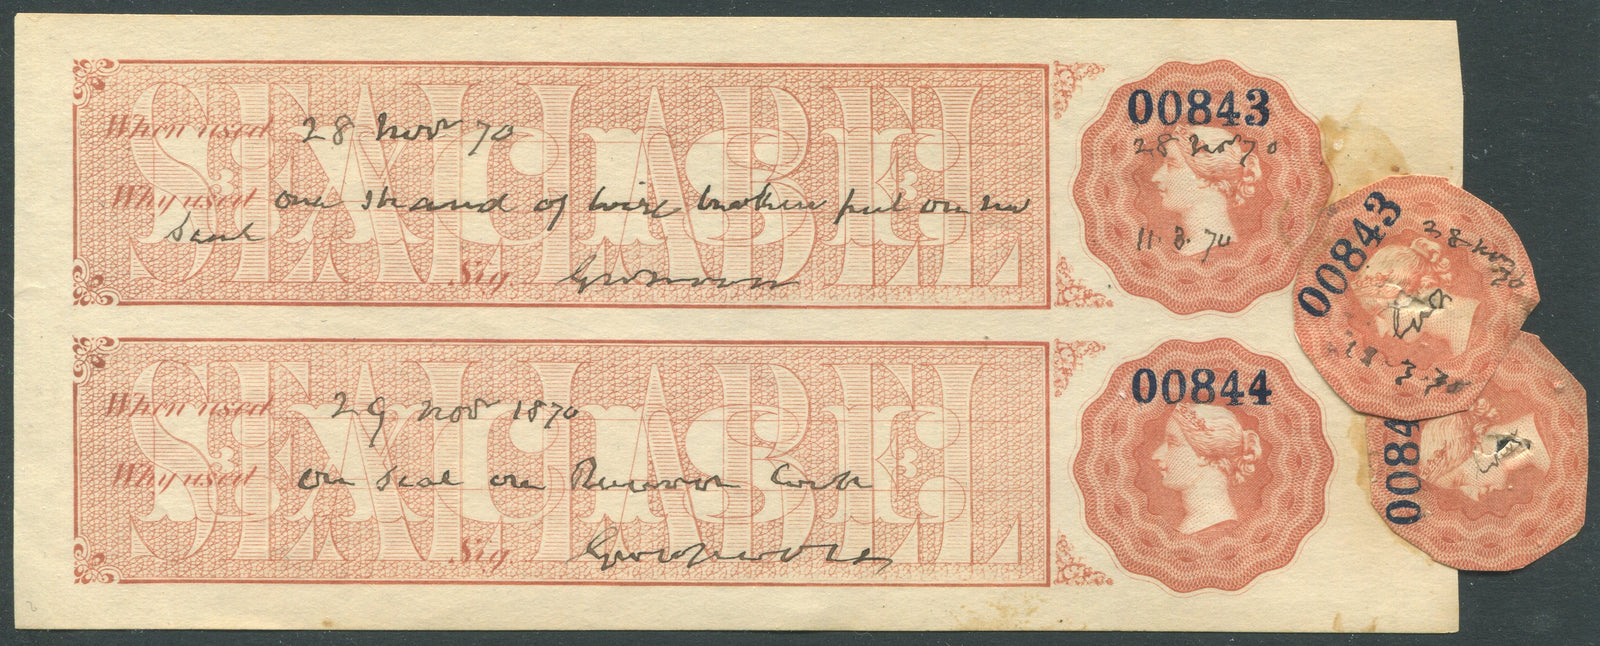 SEAL LABEL
EXCISE
When used 28 Novr 70
Why used one strand of wire broken put on new
Seal
Sig
00843
28 Novr 70
11.3.70
00843
28 Nov 70
18.3.70
SEAL LABEL
EXCISE
When used 29 Novr 1870
Why used on seal on Receiver Cock
Sig
00844
0084